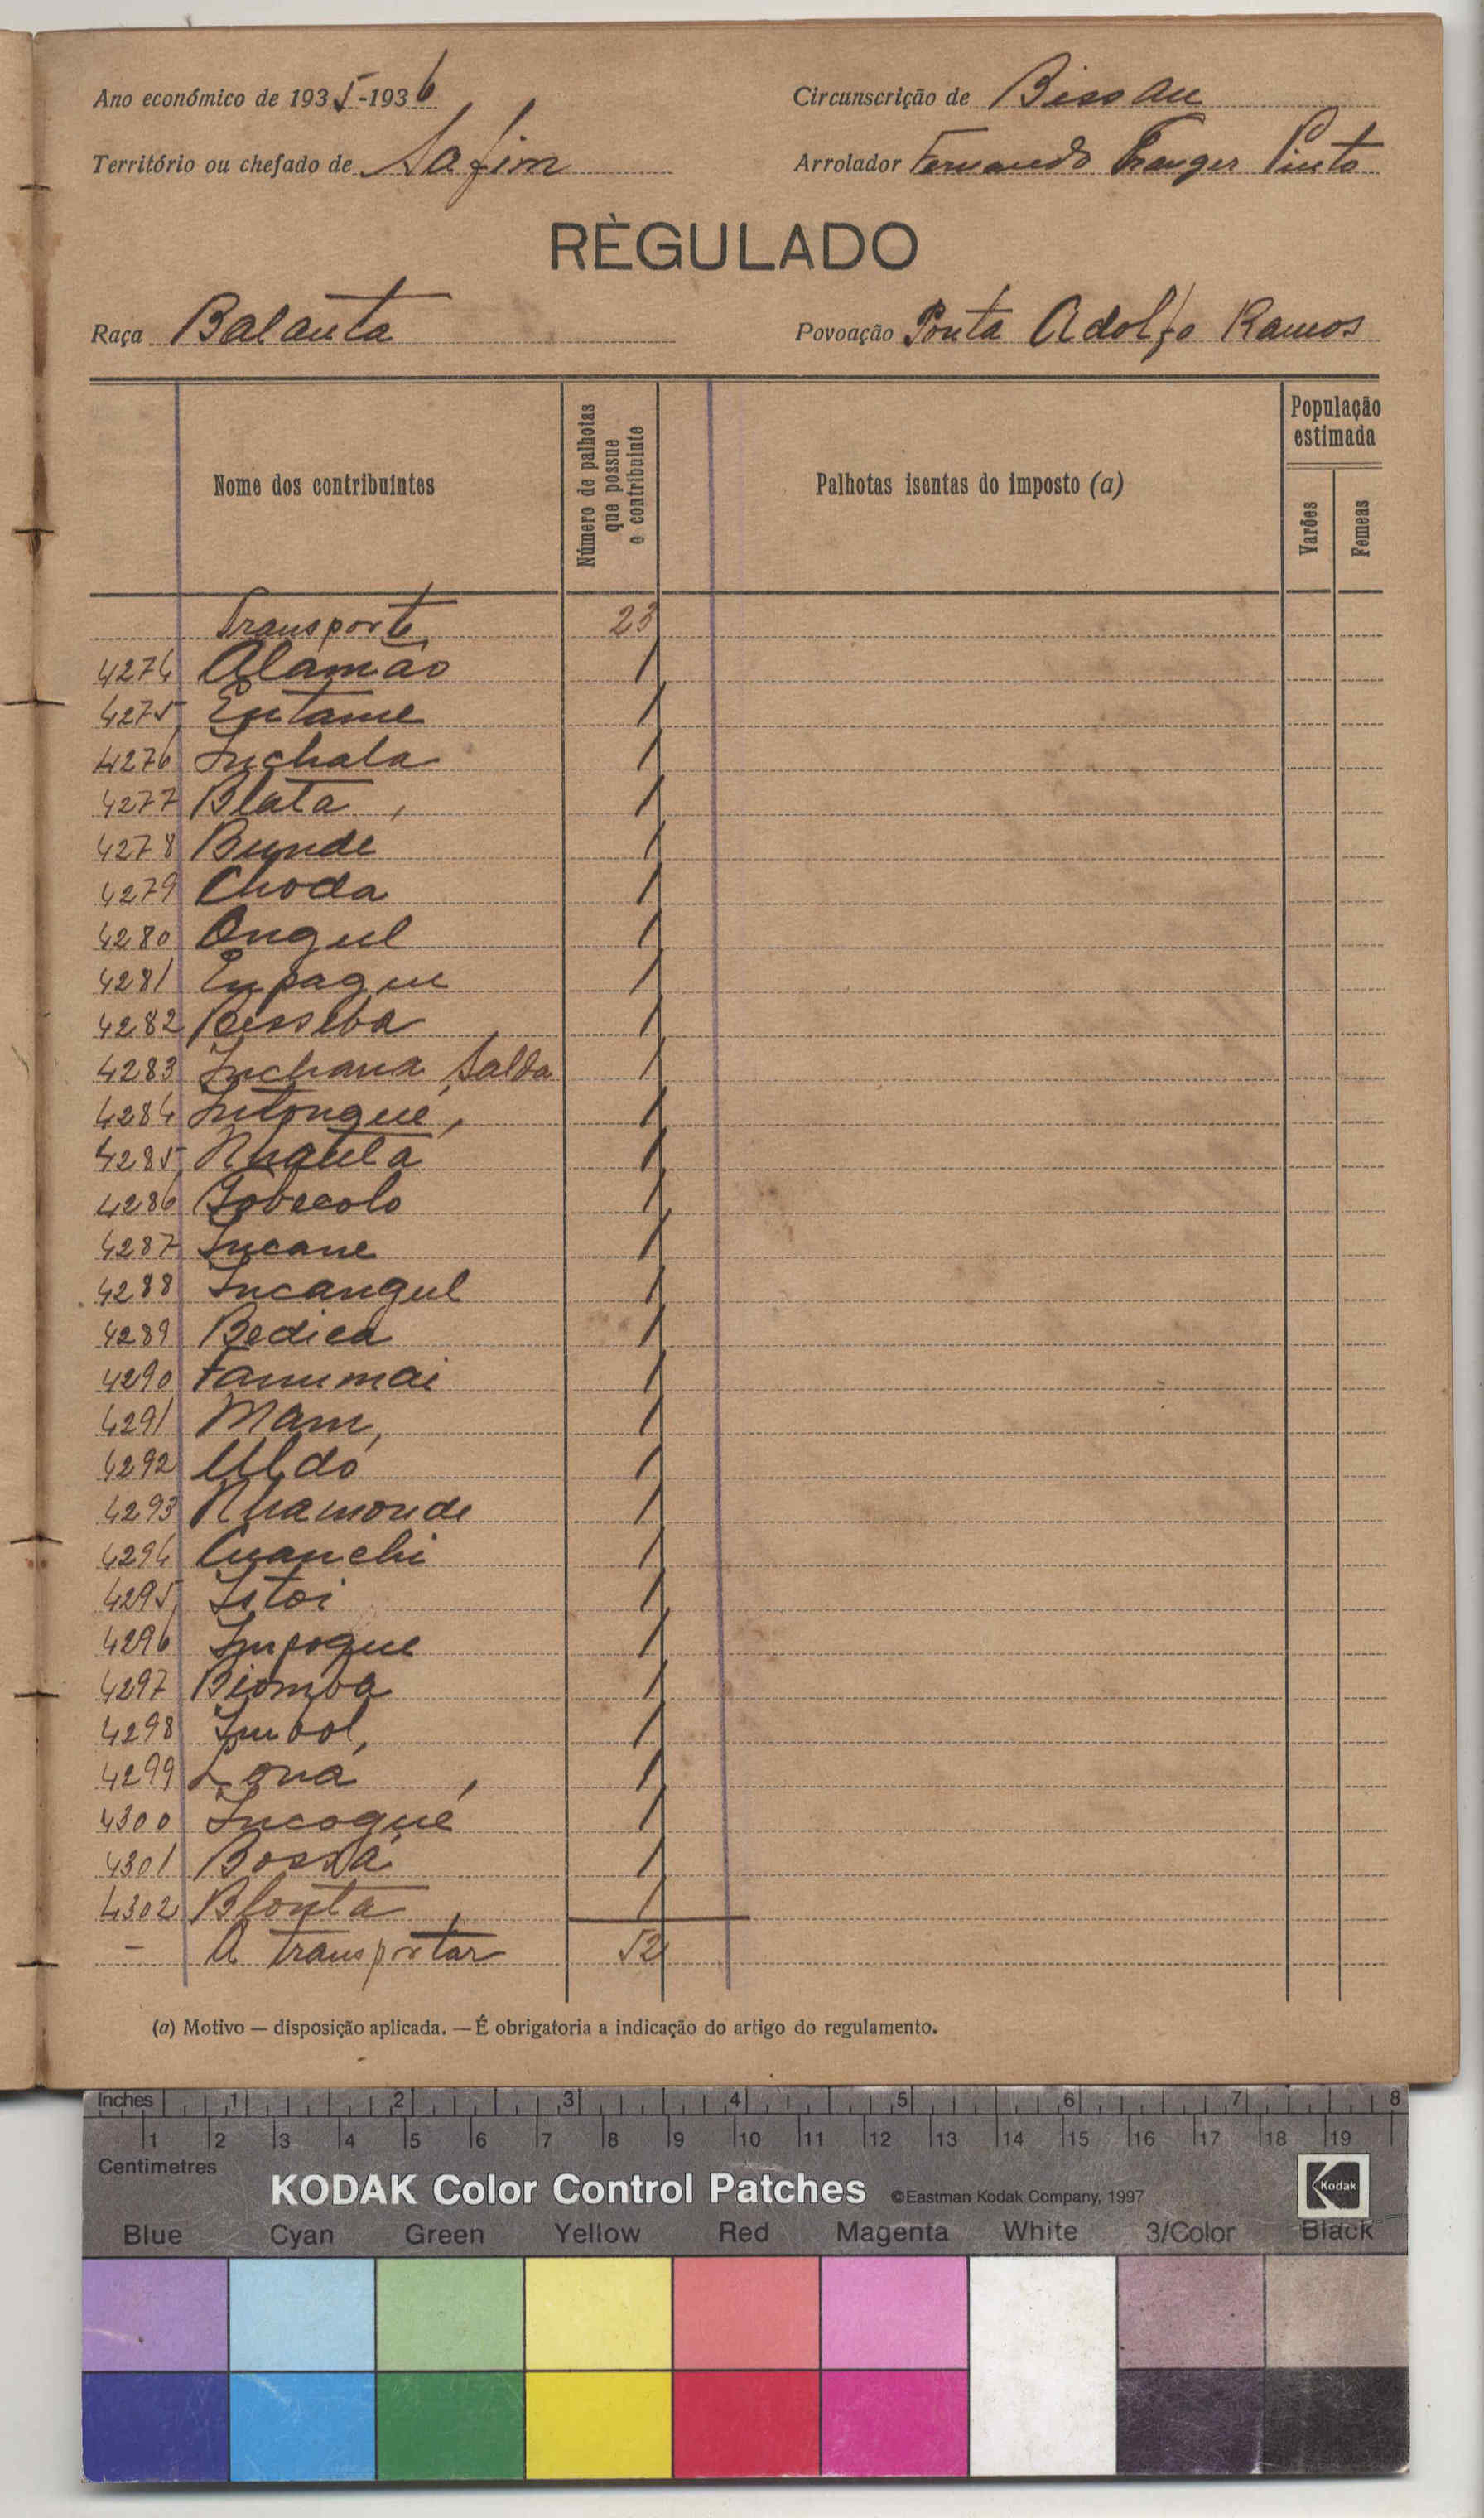 Ano económico de 1935-1936 Circunscrição de Bissau
Território ou chefado de Safim Arrolador Fernando Pinto
RÈGULADO
Raça Balanta Povoação Ponta Adolfo Ramos
Nome dos contribuintes Número de palhotas que possue o contribuinte Palhotas isentas do imposto (a) População estimada Varões Femeas
Transporte 23
4274 Alamão 1
4275 Entame 1
4276 Inchala 1
4277 Blata 1
4278 Bunde 1
4279 Choda 1
4280 Ongul 1
4281 Enpague 1
4282 Besseba 1
4283 Inchana Salda 1
4284 Intongué 1
4285 1
4286 1
4287 Incane 1
4288 Incangul 1
4289 Bedica 1
4290 1
4291 Mam 1
4292 1
4293 Nhamonde 1
4294 Cuanchi 1
4295 Istoi 1
4296 1
4297 Biomba 1
4298 Imbol 1
4299 Loná 1
4300 Incogué 1
4301 Bossá 1
4302 Blonta 1
- A transportar 52
(a) Motivo — disposição aplicada. — É obrigatoria a indicação do artigo do regulamento.
Inches 1 2 3 4 5 6 7 8
1 2 3 4 5 6 7 8 9 10 11 12 13 14 15 16 17 18 19
Centimetres
KODAK Color Control Patches ©Eastman Kodak Company, 1997 Kodak
Blue Cyan Green Yellow Red Magenta White 3/Color Black